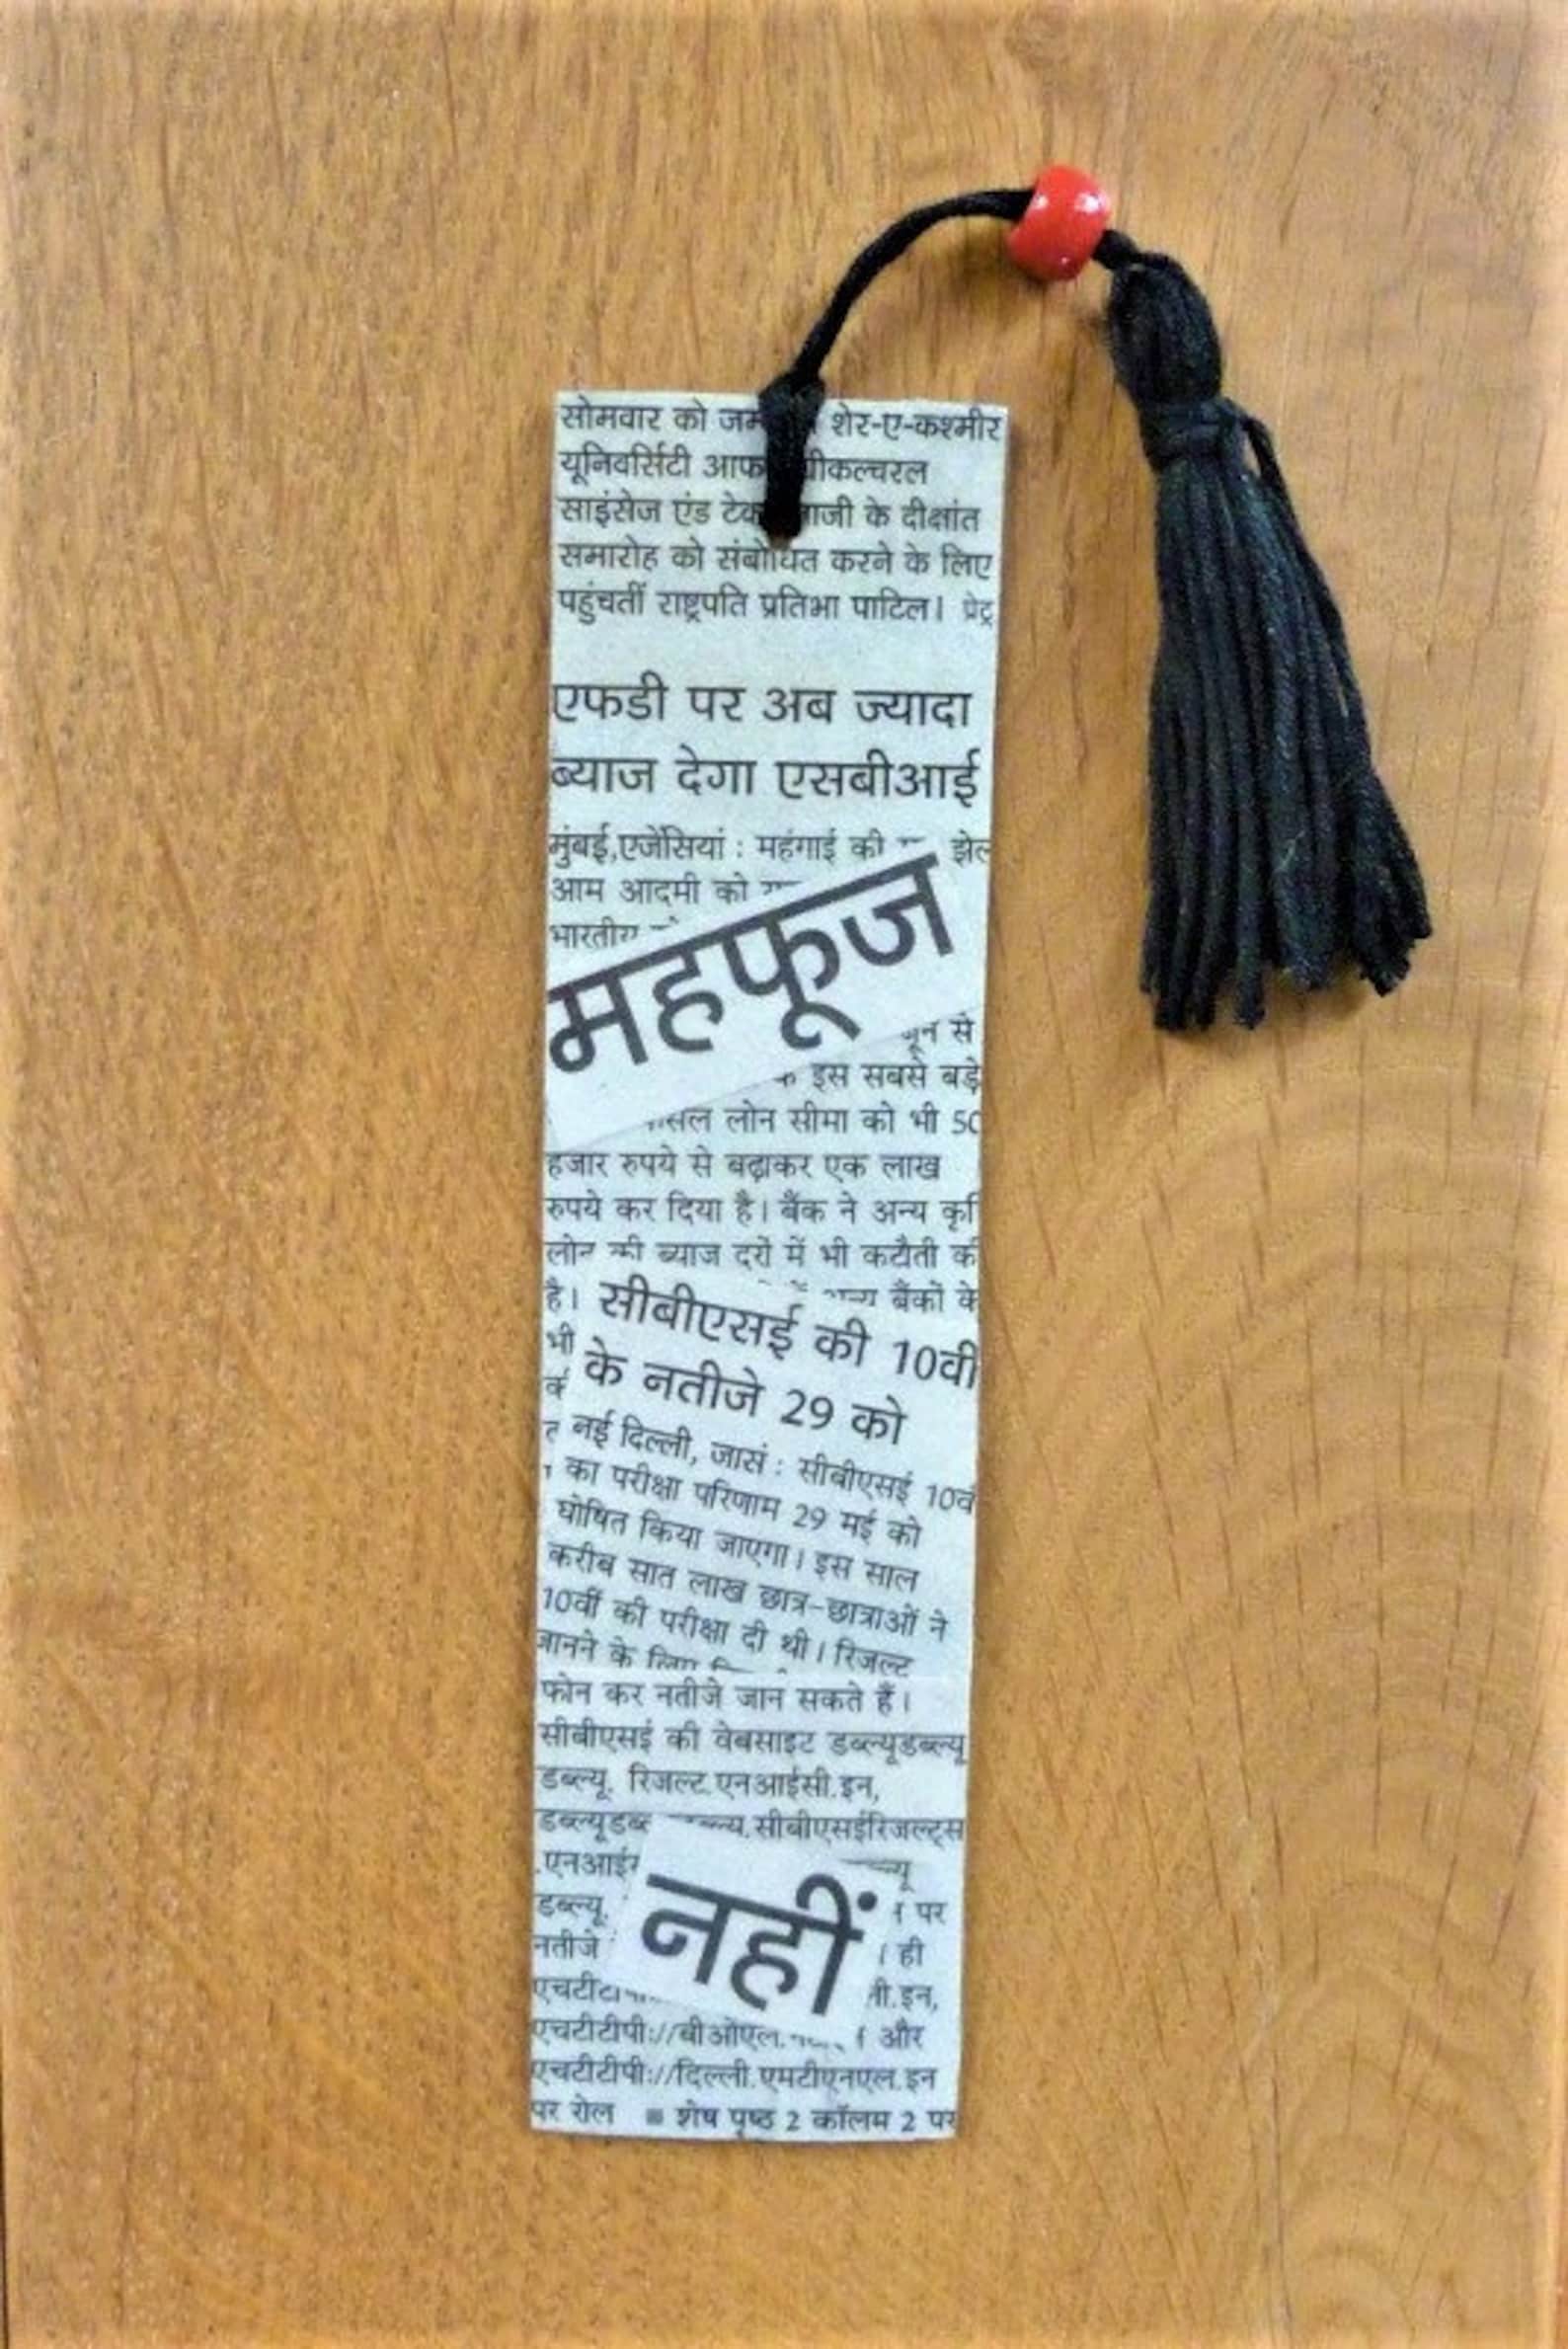 सोमवार को शेर-ए-कश्मीर
यूनिवर्सिटी आफ
साइंसेज एंड के दीक्षांत
समारोह को संबोधित करने के लिए
पहुंचतीं राष्ट्रपति प्रतिभा पाटिल। प्रेट्र
एफडी पर अब ज्यादा
ब्याज देगा एसबीआई
मुंबई,एजेंसियां : महंगाई की झेल
आम आदमी को
महफूज
से
इस सबसे बड़े
लोन सीमा को भी 50
हजार रुपये से बढ़ाकर एक लाख
रुपये कर दिया है। बैंक ने अन्य कृ
की ब्याज दरों में भी कटौती की
है। बैंकों के
भी
सीबीएसई की 10वीं
के नतीजे 29 को
नई दिल्ली, जासं : सीबीएसई 10वीं
का परीक्षा परिणाम 29 मई को
घोषित किया जाएगा। इस साल
करीब सात लाख छात्र-छात्राओं ने
10वीं की परीक्षा दी थी। रिजल्ट
जानने के लिए
फोन कर नतीजे जान सकते हैं।
सीबीएसई की वेबसाइट डब्ल्यूडब्ल्यू
डब्ल्यू. रिजल्ट.एनआईसी.इन,
सीबीएसईरिजल्ट्स
डब्ल्यू. पर
नतीजे ही
नहीं
इन,
एचटीटीपी://बीओएल. और
एचटीटीपी://दिल्ली.एमटीएनएल.इन
पर रोल ■ शेष पृष्ठ 2 कॉलम 2 पर